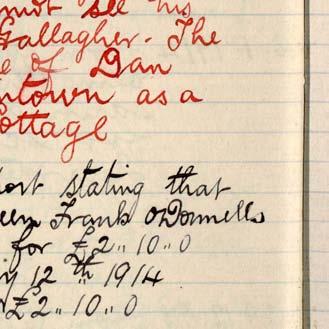 not see his
Gallagher. The
e of Dan
ntown as a
ottage
ort stating that
een Frank O'Donnells
for £2,, 10,, 0
y 12th 1914
r £2,, 10,, 0